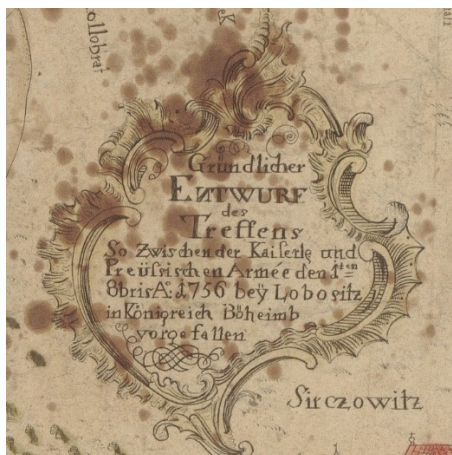 ollobrat
k
Gründlicher
ENTWURF
des
Treffens
So Zwischen der Kaiserle und
Preüssischen Armée den 1ten
8bris A: 1756 beÿ Lobositz
in Königreich Böheimb
vorgefallen
Sirczowitz